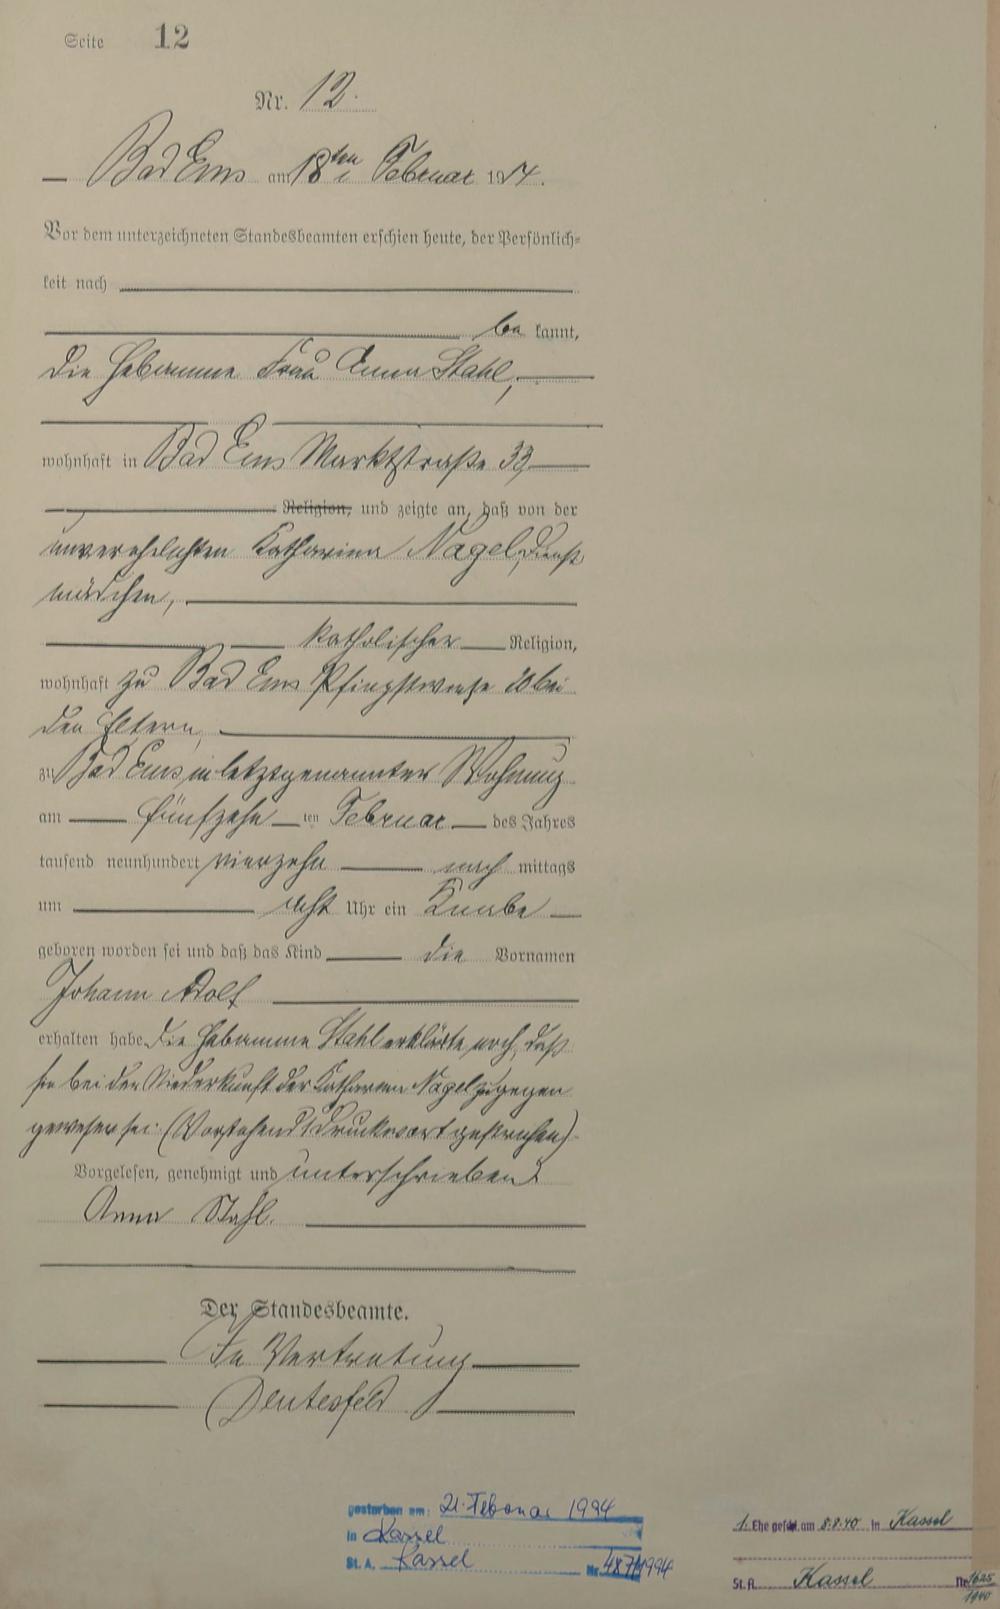 Seite 12
Nr. 12.
Bad Ems am 18ten Februar 1914.
Vor dem unterzeichneten Standesbeamten erschien heute, der Persönlich-
keit nach
be kannt,
die Hebamme Frau Anna Stahl,
wohnhaft in Bad Ems Marktstraße 33
Religion, und zeigte an, daß von der
unverehelichten Katharina Nagel, Dienst
mädchen,
katholischer Religion,
wohnhaft zu Bad Ems Pfingstwiese 20 bei
den Eltern,
zu Bad Ems in letztgenannter Wohnung
am fünfzehn ten Februar des Jahres
tausend neunhundert vierzehn nach mittags
um acht Uhr ein Knabe
geboren worden sei und daß das Kind die Vornamen
Johann Adolf
erhalten habe. Die Hebamme Stahl erklärte noch, daß
sie bei der Niederkunft der Katharina Nagel zugegen
gewesen sei. (Vorstehend 1 Druckwort gestrichen)
Vorgelesen, genehmigt und unterschrieben
Anna Stahl.
Der Standesbeamte.
In Vertretung
gestorben am: 21. Februar 1994
in Kassel
St. A. Kassel Nr. 487/1994
1. Ehe geschl. am 8.8.40 in Kassel
St. A. Kassel Nr. 1625/1940